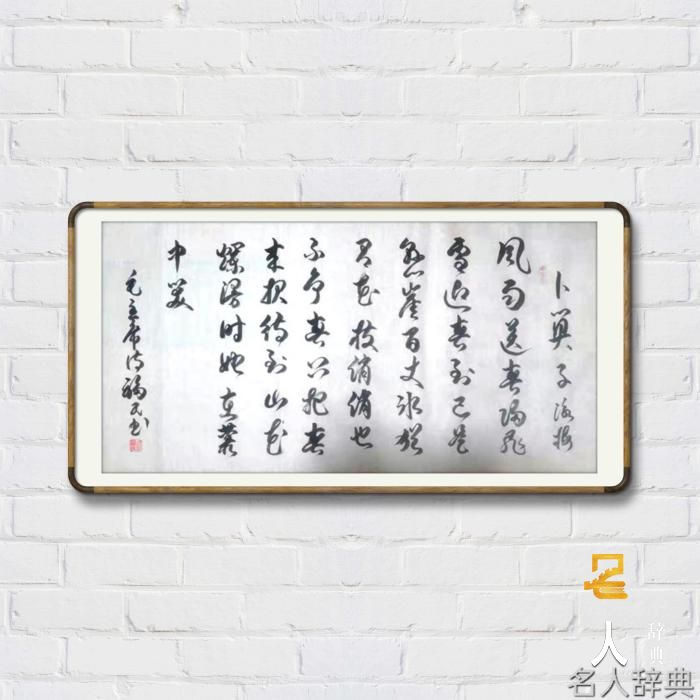 卜算子 咏梅
风雨送春归飛
雪迎春到已是
悬崖百丈冰犹
有花枝俏俏也
不争春只把春
来报待到山花
爛漫时她在叢
中笑
毛主席诗 福民书
名
人
辞典
名人辞典